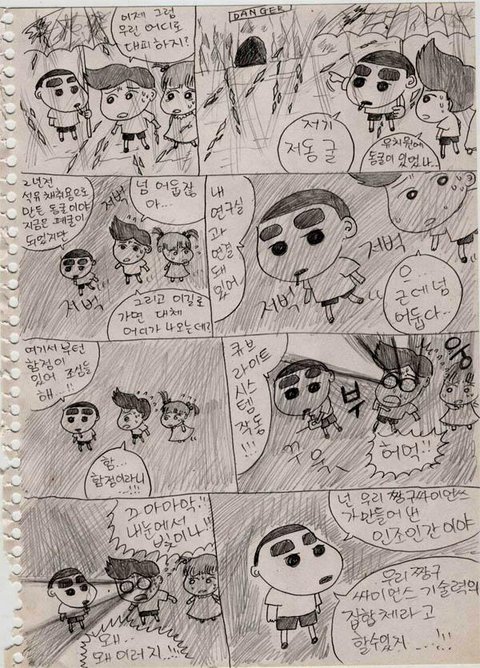 이제 그럼
우린 어디로
대피하지?
DANGER
저기
저동굴
유치원에
동굴이 있었나..
2년전
석유 채취용으로
만든 동굴이야
지금은 폐굴이
되었지만
저벅
저벅
넘 어둡잖
아...
그리고 이길로
가면 대체
어디가 나오는데?
내
연구실
과
연결
돼
있어
저벅
저벅
으...
근데 넘
어둡다..
여기서부턴
함정이
있어 조심들
해..!!
함...
함정이라니
...!!!
큐브
라이트
시스
템
작동
!!!
꾸욱
부
웅
허억!!
으아아악!!
내눈에서
빛이나!!
왜..
왜이러지..!!
넌 우리 짱구싸이언쓰
가 만들어 낸
인조인간이야
우리짱구
싸이먼스 기술력의
집합체라고
할수있지 ...!!!